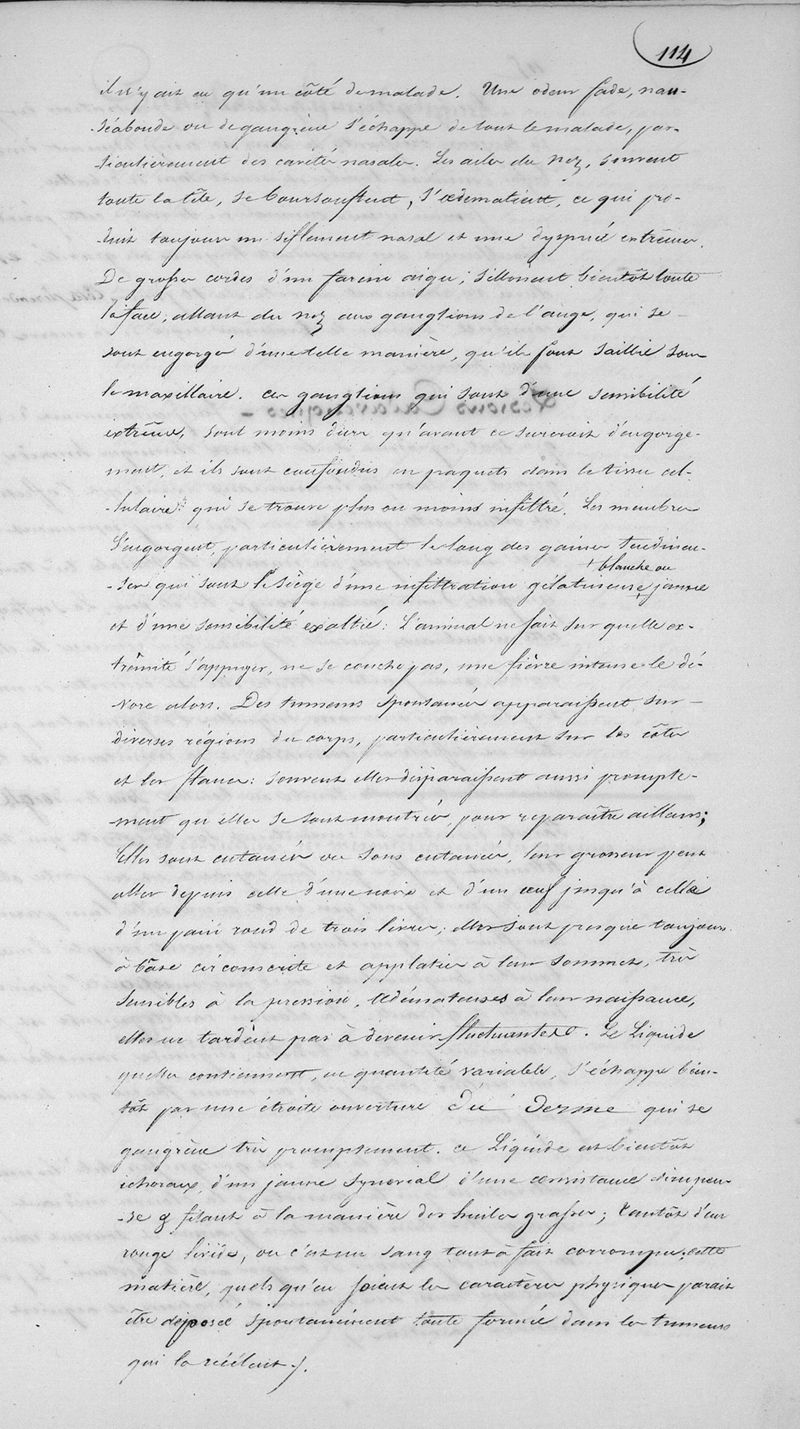 114
il n'y ait eu qu'un côté de malade. Une odeur fade, nau-
-séabonde ou de gangrène s'échappe de tout le malade, par-
-ticulièrement des cavités nasales. Les ailes du nez, souvent
toute la tête, se boursouflent, s'œdematient, ce qui pro-
-duit toujours un siflement nasal et une dyspnée extrême.
De grosses cordes d'un farcin aigu, sillonnent bientôt toute
la face, allant du nez aux ganglions de l'auge, qui se
sont engorgés d'une telle manière, qu'ils font saillie sous
le maxillaire. ces ganglions qui sont d'une sensibilité
extrême, sont moins durs qu'avant ce surcroit d'engorge-
ment, et ils sont confondus en paquets dans le tissu cel-
-lulaire qui se trouve plus ou moins infiltré. Les membres
s'engorgent, particulièrement le long des gaines tendineu-
+ blanche ou
-ses qui sont le siège d'une infiltration gélatineuse + jaune
et d'une sensibilité exaltée: L'animal ne sait sur quelle ex-
-trémité s'appuyer, ne se couche pas, une fièvre intense le dé-
-vore alors. Des tumeurs spontanées apparaissent sur
diverses régions du corps, particulièrement sur les côtes
et les flancs: souvent elles disparaissent aussi prompte-
-ment qu'elles se sont montrées, pour reparaître ailleurs;
Elles sont cutanées ou sous cutanées, leur grosseur peut
aller depuis celle d'une noix et d'un œuf jusqu'à celle
d'un pain rond de trois livres; elles sont presque toujours
à base circonscrite et applaties à leur sommet, très
sensibles à la pression, œdémateuses à leur naissance,
elles ne tardent pas à devenir fluctuantes. Le Liquide
quelles contiennent, en quantité variable, s'échappe bien-
tôt par une étroite ouverture du derme qui se
gangrène très promptement. ce Liquide est bientôt
ichoreux, d'un jaune synovial d'une consistance
filant à la manière des huiles grasses; tantôt d'un
rouge livide, ou c'est un sang tout à fait corrompu; cette
matière, quels qu'en soient les caractères physiques parait
être déposée spontanément toute formée dans les tumeurs
qui la recèlent.